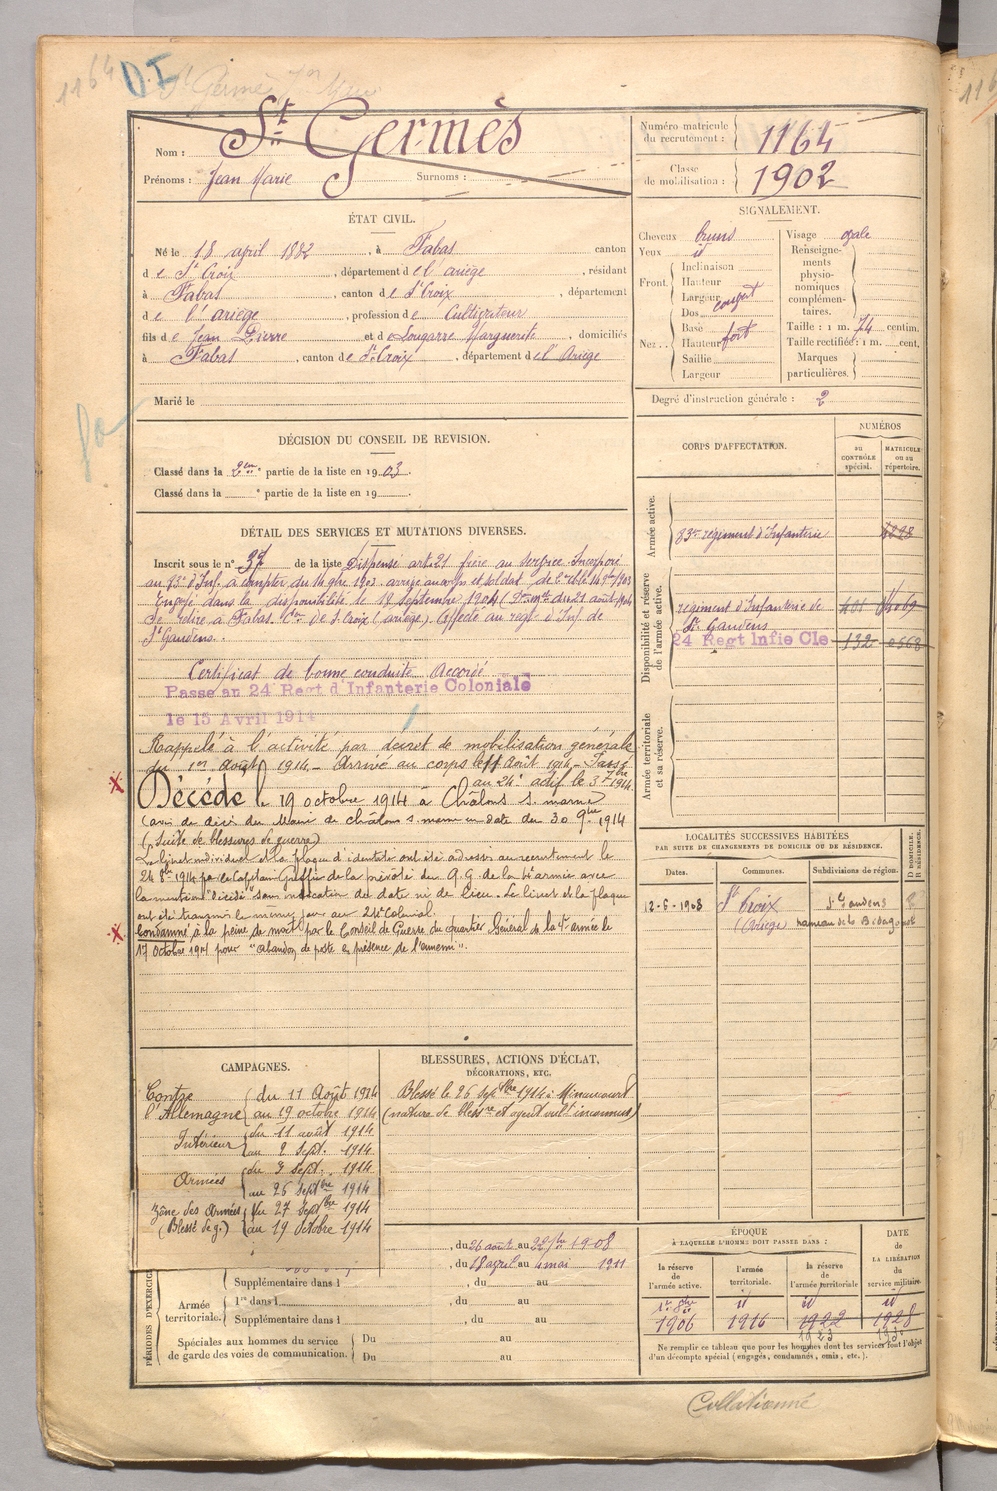 1164
D.I
St Germès
Nom :
Prénoms : Jean Marie
Surnoms :
Numéro matricule
du recrutement :
1164
Classe
de mobilisation :
1902
ÉTAT CIVIL.
Né le 18 april 1882, à Fabas canton
de St Croix, département de l'ariège, résidant
à Fabas, canton de St Croix, département
de l'ariège, profession de Cultivateur
fils de Jean Pierre et de Lougarre Marguerite, domiciliés
à Fabas, canton de St Croix, département de l'Ariège
Marié le
SIGNALEMENT.
Cheveux bruns
Yeux id
Front.
Inclinaison
Hauteur
Largeur
Nez..
Dos
Base
Hauteur fort
Saillie
Largeur
Visage ovale
Renseigne-
ments
physio-
nomiques
complémen-
taires.
Taille : 1 m. 74 centim.
Taille rectifiée: 1 m. cent.
Marques
particulières.
Degré d'instruction générale : 2
DÉCISION DU CONSEIL DE REVISION.
Classé dans la 2em partie de la liste en 1903.
Classé dans la e partie de la liste en 19
DÉTAIL DES SERVICES ET MUTATIONS DIVERSES.
Inscrit sous le n° 37 de la liste Dispensé art 21 frère au service. Incorporé
au 83e d'Inf. à compter du 14 9bre 1903 arrivé au corps et soldat de 2e cl. le 14 9bre 1903
Envoyé dans la disponibilité le 18 septembre 1904 (Don mlle du 21 août 1904
Se retire à Fabas Con de St Croix (ariège). Affecté au regt d'Inf. de
St Gaudens.
Certificat de bonne conduite Accordé
Passé au 24 Regt d'Infanterie Coloniale
le 15 Avril 1914
Rappelé à l'activité par décret de mobilisation générale
du 1er Août 1914 - Arrivé au corps le 11 Août 1914 - Passé
au 24e actif le 3 7bre 1914.
Décédé le 19 octobre 1914 à Châlons s. marne
(avis de décès du Maire de châlons s. marne en date du 30 9bre 1914
(Suite de blessures de guerre)
Le livret individuel et la plaque d'identité ont été adressés au recrutement le
24 8bre 1914 par le Capitaine Greffier de la prévôté du Q.G. de la 4e armée avec
la mention "Décédé" sans indication de date ni de lieu. Le livret et la plaque
ont été transmis le même jour au 24e Colonial.
Condamné à la peine de mort par le Conseil de Guerre du Quartier Général de la 4e armée le
17 octobre 1914 pour "Abandon de poste en présence de l'ennemi".
CORPS D'AFFECTATION.
NUMÉROS
au
CONTRÔLE
spécial.
MATRICULE
ou au
répertoire.
Armée active.
83me régiment d'Infanterie
Disponibilité et réserve
de l'armée active.
régiment d'Infanterie de
St Gaudens
24 Regt Infie Cle 132
Armée territoriale
et sa réserve.
LOCALITÉS SUCCESSIVES HABITÉES
PAR SUITE DE CHANGEMENTS DE DOMICILE OU DE RÉSIDENCE.
D DOMICILE.
R RÉSIDENCE.
Dates.
Communes.
Subdivisions de région.
12-6-1908 St Croix St Gaudens
(Ariège) hameau de la
CAMPAGNES.
Contre du 11 Août 1914
l'Allemagne au 19 octobre 1914
Intérieur du 11 août 1914
au 2 Sept. 1914
Armées du 3 Sept. 1914
au 26 Septbre 1914
Zône des Armées du 27 Septbre 1914
(Blessé de g.) au 19 octobre 1914
BLESSURES, ACTIONS D'ÉCLAT,
DÉCORATIONS, ETC.
Blessé le 26 septbre 1914 à Minaucourt
(nature de bless're et agent vuln't inconnus)
PÉRIODES D'EXERCIC
, du 26 août au 22 7bre 1908
, du 18 avril au 4 mai 1911
Supplémentaire dans l , du au
Armée
territoriale.
1re dans l , du au
Supplémentaire dans l , du au
Spéciales aux hommes du service
de garde des voies de communication.
Du au
Du au
ÉPOQUE
À LAQUELLE L'HOMME DOIT PASSER DANS :
DATE
de
LA LIBÉRATION
du
service militaire.
la réserve
de
l'armée active.
l'armée
territoriale.
la réserve
de
l'armée territoriale
1er 8bre id id id
1906 1916 1922 1928
1923
Ne remplir ce tableau que pour les hommes dont les services font l'objet
d'un décompte spécial (engagés, condamnés, omis, etc.).
Collationné